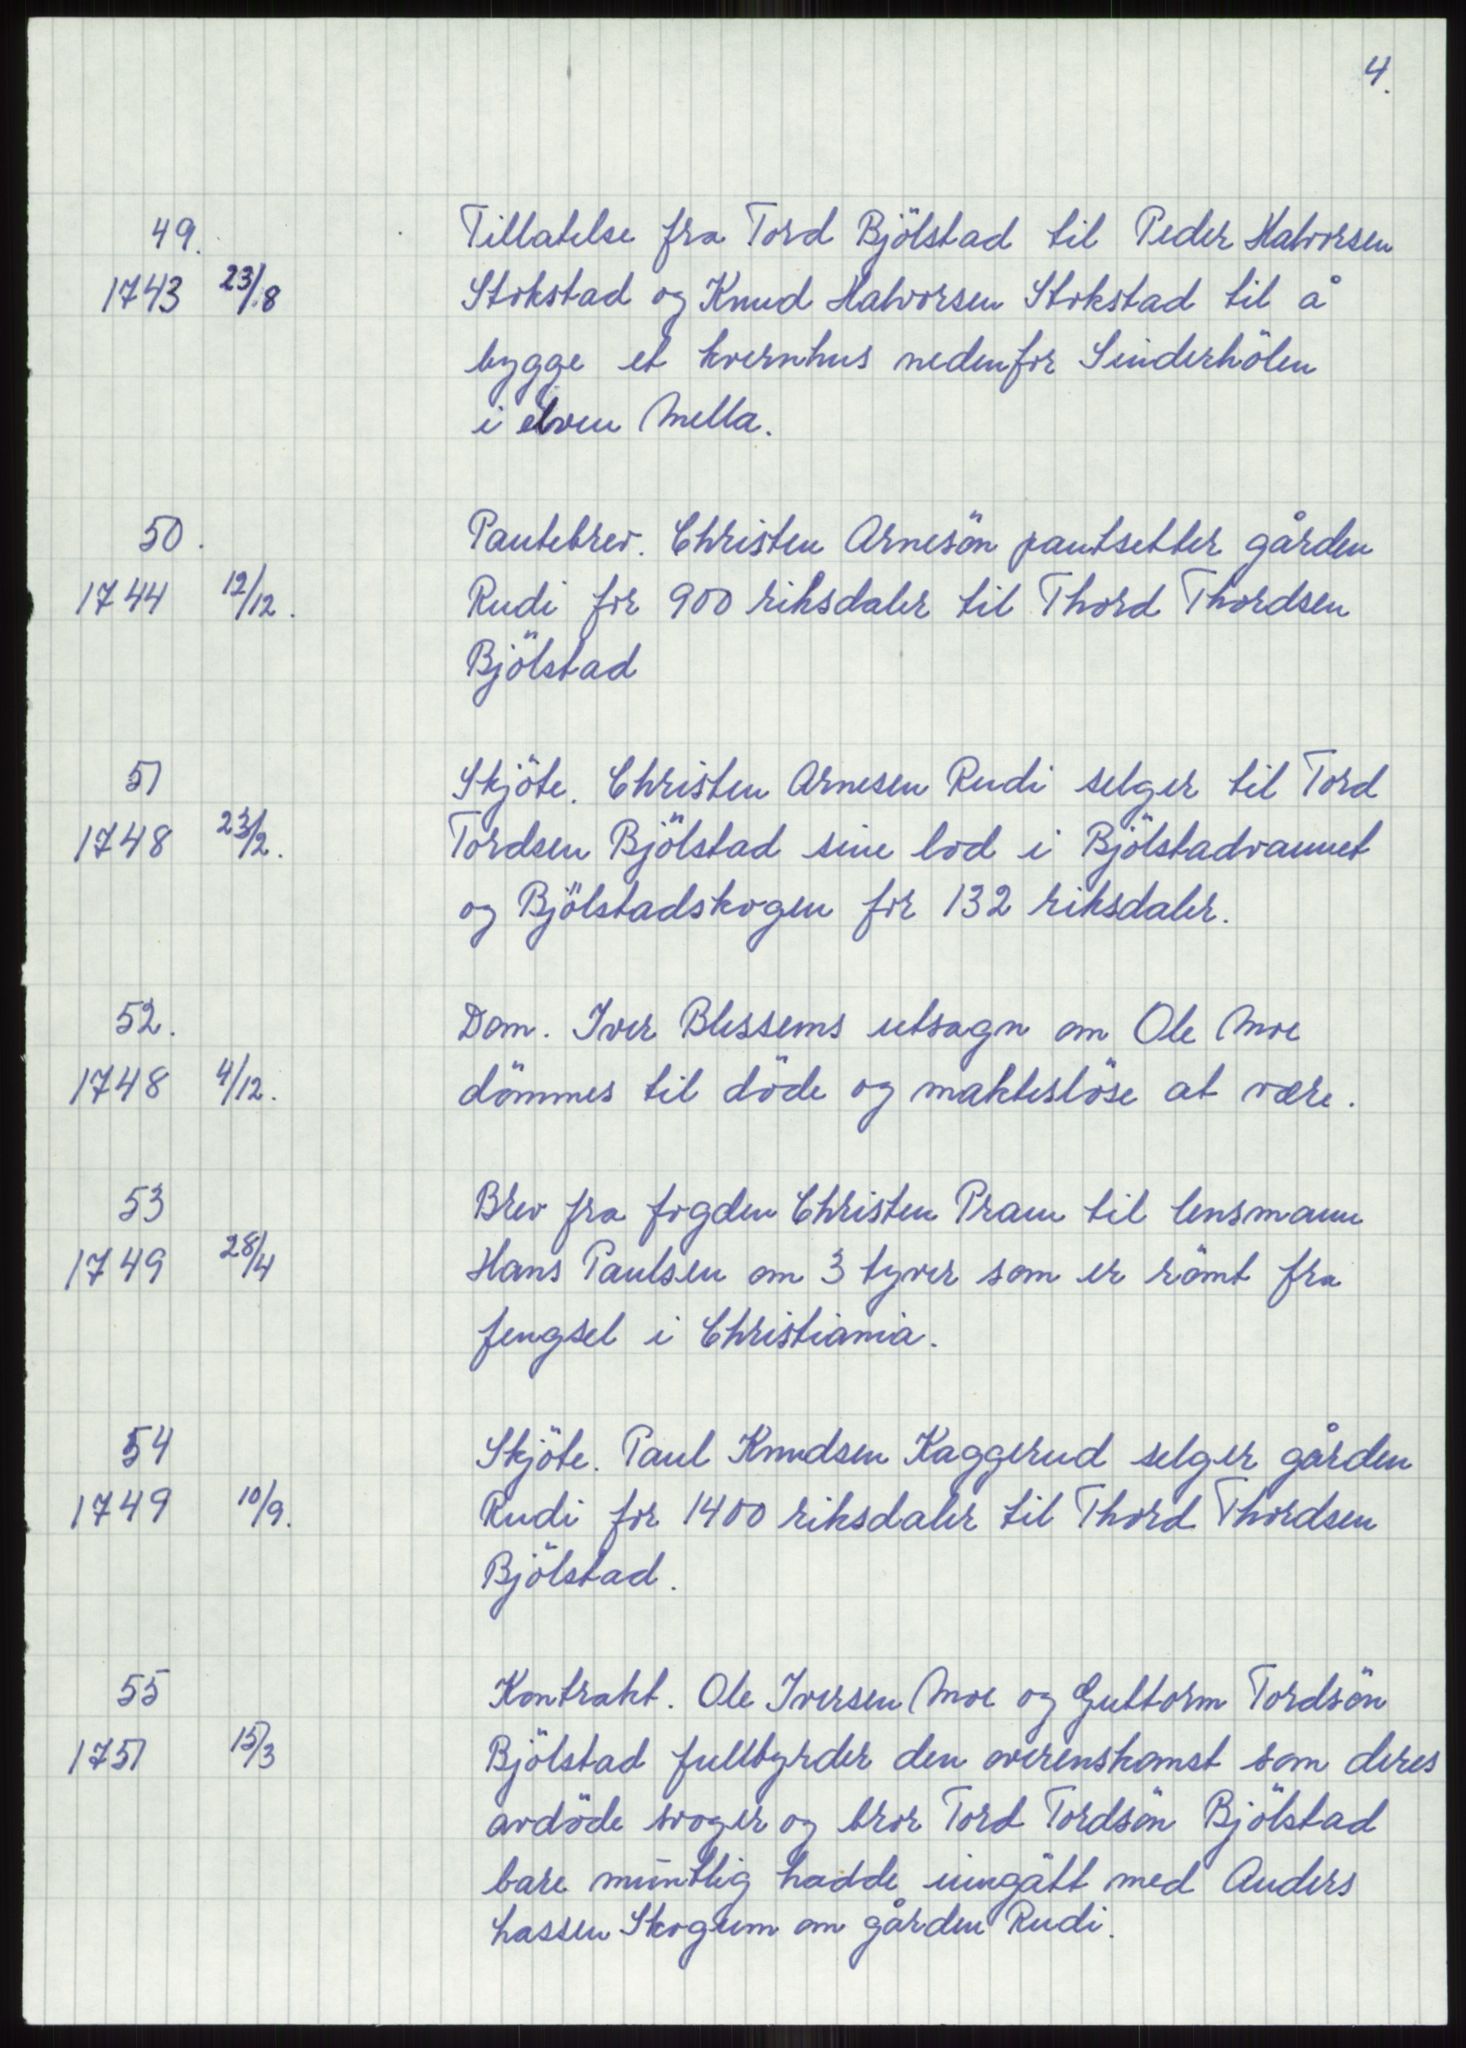 4.
49. Tillatelse fra Tord Bjölstad til Peder Halvorsen
1743 23/8 Stokstad og Knud Halvorsen Stokstad til å
bygge et kvernhus nedenfor Sinderhölen
i elven Mella.
50. Pantebrev. Christen Arnesön pantsetter gården
1744 12/12. Rudi for 900 riksdaler til Thord Thordsen
Bjölstad
51 Skjöte. Christen Arnesen Rudi selger til Tord
1748 23/2. Tordsen Bjölstad sine lod i Bjölstadvannet
og Bjölstadskogen for 132 riksdaler.
52. Dom. Iver Blessems utsagn om Ole Moe
1748 4/12. dömmes til döde og makteslöse at være.
53 Brev fra fogden Christen Pram til lensmann
1749 28/4 Hans Paulsen om 3 tyver som er römt fra
fengsel i Christiania.
54 Skjöte. Paul Knudsen Kaggerud selger gården
1749 10/9. Rudi for 1400 riksdaler til Thord Thordsen
Bjölstad.
55 Kontrakt. Ole Iversen Moe og Guttorm Tordsön
1751 15/3 Bjölstad fullbyrder den overenskomst som deres
avdöde svoger og bror Tord Tordsön Bjölstad
bare muntlig hadde inngått med Anders
Lassen Skogum om gården Rudi.